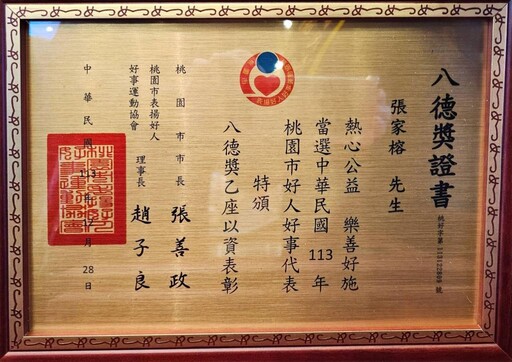 八德獎證書
桃好字第 號
張家榕 先生
熱心公益 樂善好施
當選中華民國 113 年
桃園市好人好事代表
特頒
八德獎乙座以資表彰
桃園市市長 張善政
桃園市表揚好人
好事運動協會 理事長 趙子良
中華民國 113 年 月 28 日